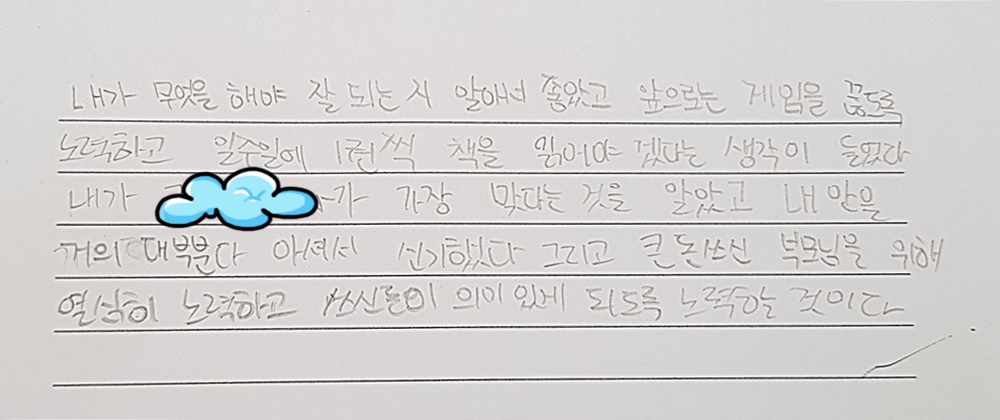 내가 무엇을 해야 잘 되는지 알아서 좋았고 앞으로는 게임을 끊도록
노력하고 일주일에 1권씩 책을 읽어야 겠다는 생각이 들었다
내가 가 가장 맞다는 것을 알았고 내 안을
거의 대부분다 아셔서 신기했다 그리고 큰돈쓰신 부모님을 위해
열심히 노력하고 쓰신돈이 의미있게 되도록 노력하는 것이다